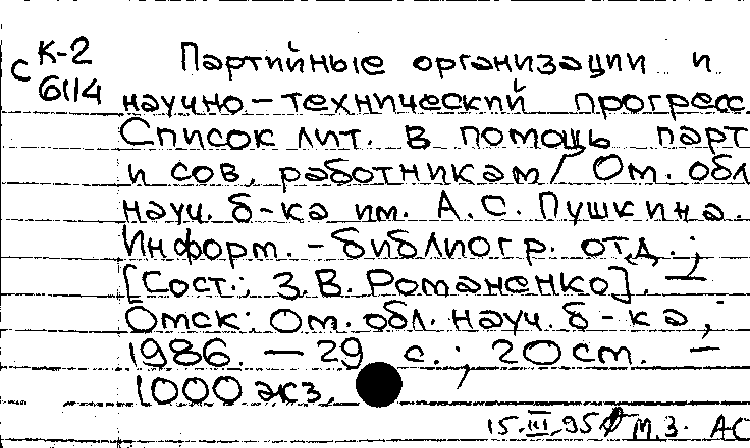 С К-2
6114
Партийные организации и
научно-технический прогресс.
Список лит. в помощь парт
и сов. работникам / Ом. обл
науч. б-ка им. А.С. Пушкина.
Информ.-библиогр. отд.;
[Сост.: З.В. Романенко]. —
Омск: Ом. обл. науч. б-ка,
1986. — 29 с.; 20 см. —
1000 экз.
15.III.95 М.З. АС